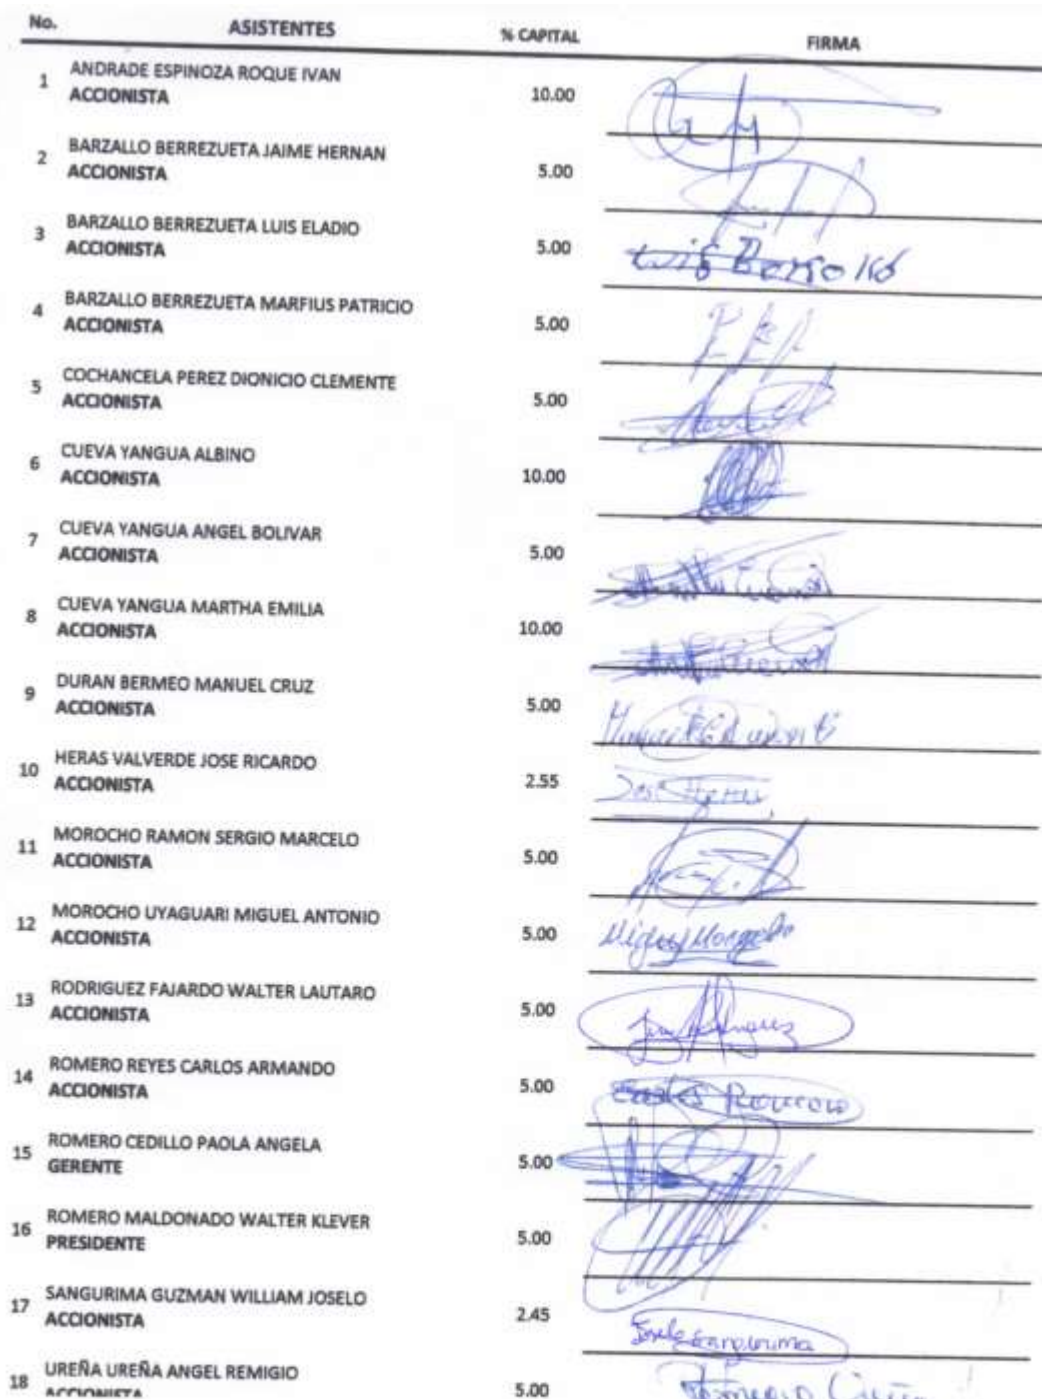 No. ASISTENTES % CAPITAL FIRMA
1 ANDRADE ESPINOZA ROQUE IVAN
ACCIONISTA 10.00
2 BARZALLO BERREZUETA JAIME HERNAN
ACCIONISTA 5.00
3 BARZALLO BERREZUETA LUIS ELADIO
ACCIONISTA 5.00 Luis
4 BARZALLO BERREZUETA MARFIUS PATRICIO
ACCIONISTA 5.00
5 COCHANCELA PEREZ DIONICIO CLEMENTE
ACCIONISTA 5.00
6 CUEVA YANGUA ALBINO
ACCIONISTA 10.00
7 CUEVA YANGUA ANGEL BOLIVAR
ACCIONISTA 5.00
8 CUEVA YANGUA MARTHA EMILIA
ACCIONISTA 10.00
9 DURAN BERMEO MANUEL CRUZ
ACCIONISTA 5.00
10 HERAS VALVERDE JOSE RICARDO
ACCIONISTA 2.55 José Heras
11 MOROCHO RAMON SERGIO MARCELO
ACCIONISTA 5.00
12 MOROCHO UYAGUARI MIGUEL ANTONIO
ACCIONISTA 5.00 Miguel
13 RODRIGUEZ FAJARDO WALTER LAUTARO
ACCIONISTA 5.00
14 ROMERO REYES CARLOS ARMANDO
ACCIONISTA 5.00 Carlos Romero
15 ROMERO CEDILLO PAOLA ANGELA
GERENTE 5.00
16 ROMERO MALDONADO WALTER KLEVER
PRESIDENTE 5.00
17 SANGURIMA GUZMAN WILLIAM JOSELO
ACCIONISTA 2.45 Joselo Sangurima
18 UREÑA UREÑA ANGEL REMIGIO
ACCIONISTA 5.00